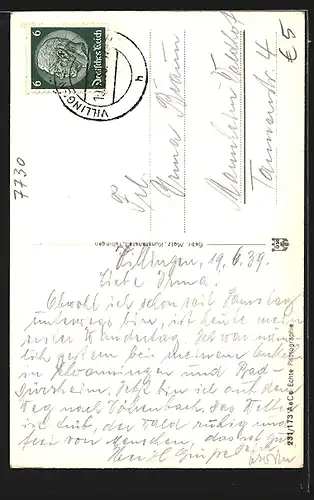 6 Deutsches Reich 6
VILLING
h
€ 5
7730
Frl.
Irma Braun
Mannheim Waldhof
Tannenstr. 4
Gebr. Metz, Kunstanstalt, Tübingen
231/173 AeCe Echte Photographie
Villingen, 19.6.39.
Liebe Irma.
Obwohl ich schon seit Samstag
unterwegs bin, ist heute mein
erster Wandertag. Ich war näm-
lich gestern bei meinem Onkel
in Schwenningen und Bad-
Dürrheim. Jetzt bin ich auf dem
Weg nach Vöhrenbach. Das Wetter
ist gut, der Wald ruhig und
frei von Menschen, das ist gut
Herzl. Grüße